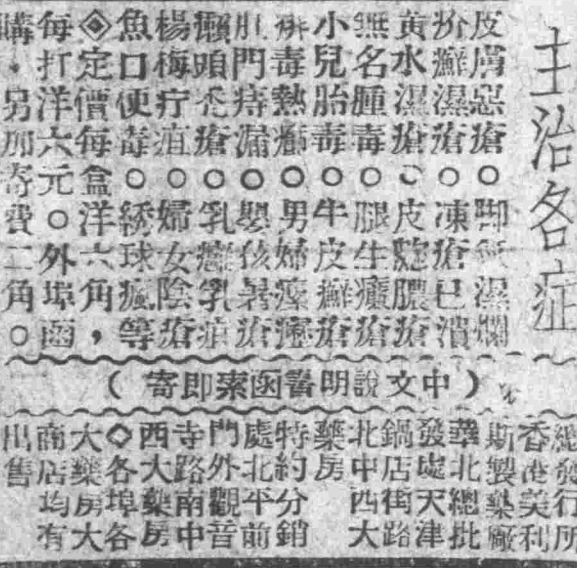 主治各症
皮膚惡瘡○脚氣濕爛
疥癬濕瘡○凍瘡已潰
黄水濕瘡○皮膿瘡
無名腫毒○腿生瘡
小兒胎毒○牛皮癬瘡
痱毒熱癤○男婦瘰癧
肛門痔漏○嬰孩暑瘡
癩頭禿瘡○乳癰乳疽
楊梅疔疽○婦女陰瘡
魚口便毒○綉球瘋等
◈定價每盒洋六角，
每打洋六元。外埠函
購，另加寄費二角。
（中文說明書函索即寄）
總發行所
香港美利
斯製藥廠
華北總批
發處天津
鍋店街路
北中西大
藥房
特約分銷
處北平前
門外觀音
寺路南中
西大藥房
◇各埠各
大藥房大
商店均有
出售